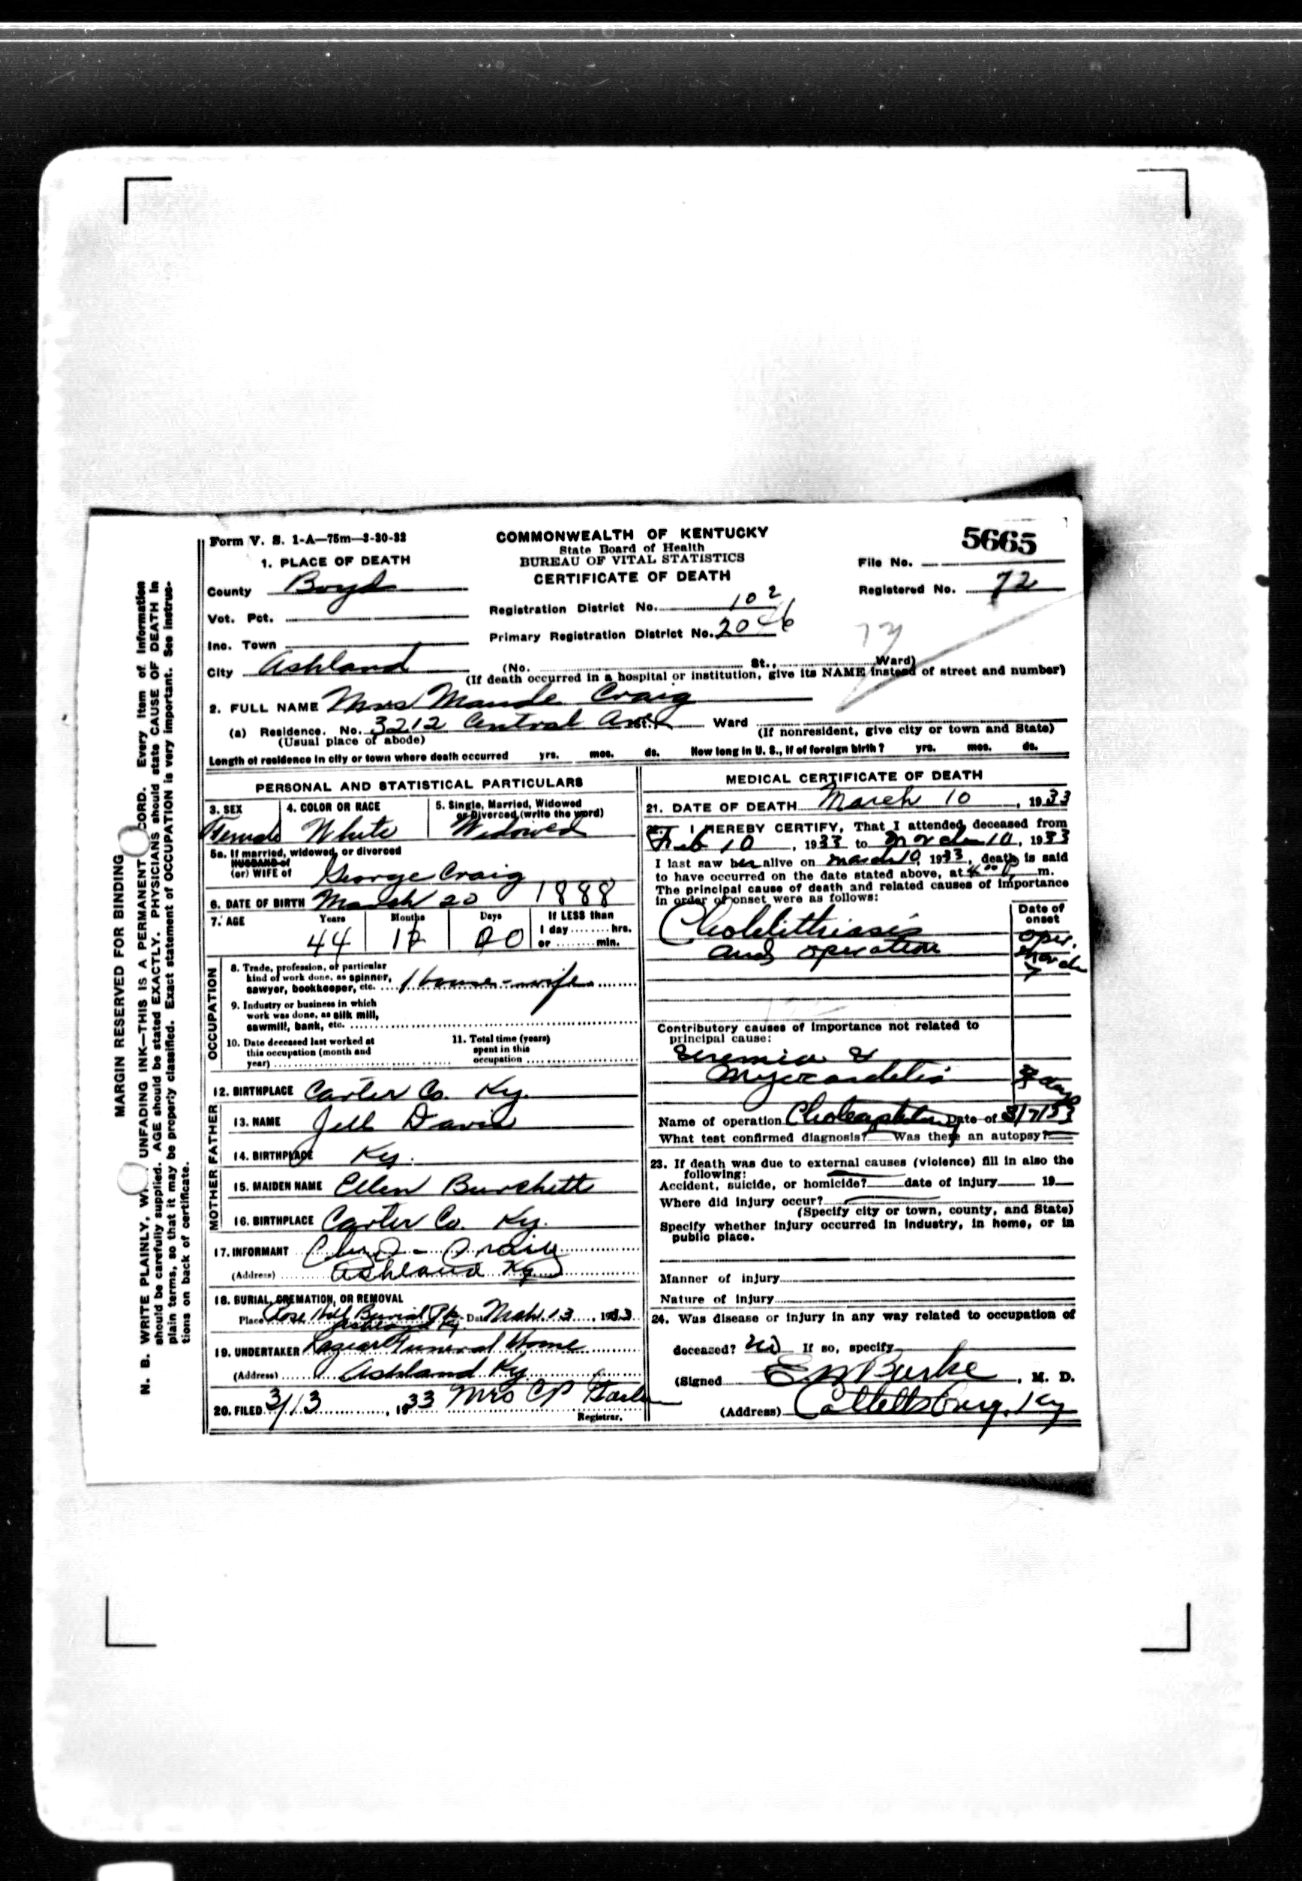 Form V. S. 1-A—75m—3-30-32
COMMONWEALTH OF KENTUCKY
State Board of Health
BUREAU OF VITAL STATISTICS
CERTIFICATE OF DEATH
5665
File No.
Registered No. 72
1. PLACE OF DEATH
County Boyd
Vot. Pct.
Inc. Town
City Ashland
Registration District No. 102
Primary Registration District No. 2046
(No. St., Ward)
(If death occurred in a hospital or institution, give its NAME instead of street and number)
2. FULL NAME Mrs Maude Craig
(a) Residence. No. 3212 Central Ave St. Ward
(Usual place of abode)
(If nonresident, give city or town and State)
Length of residence in city or town where death occurred yrs. mos. ds. How long in U. S., if of foreign birth? yrs. mos. ds.
PERSONAL AND STATISTICAL PARTICULARS
3. SEX
Female
4. COLOR OR RACE
White
5. Single, Married, Widowed or Divorced (write the word)
Widowed
5a. If married, widowed, or divorced
HUSBAND of
(or) WIFE of George Craig
6. DATE OF BIRTH March 20 1888
7. AGE Years Months Days If LESS than
44 20 1 day hrs.
or min.
OCCUPATION
8. Trade, profession, or particular
kind of work done, as spinner,
sawyer, bookkeeper, etc. House-wife
9. Industry or business in which
work was done, as silk mill,
sawmill, bank, etc.
10. Date deceased last worked at
this occupation (month and
year)
11. Total time (years)
spent in this
occupation
12. BIRTHPLACE Carter Co. Ky.
FATHER
13. NAME Jeff Davis
14. BIRTHPLACE Ky.
MOTHER
15. MAIDEN NAME Ellen Burchett
16. BIRTHPLACE Carter Co. Ky.
17. INFORMANT Craig
(Address) Ashland Ky
18. BURIAL, CREMATION, OR REMOVAL
Place Rose Hill Burial Pk. Date Mch 13, 1933
Ashland Ky.
19. UNDERTAKER Lazear Funeral Home
(Address) Ashland Ky.
20. FILED 3/13, 1933 Mrs CP
Registrar.
MEDICAL CERTIFICATE OF DEATH
21. DATE OF DEATH March 10, 1933
22. I HEREBY CERTIFY, That I attended deceased from
Feb 10, 1933 to March 10, 1933
I last saw her alive on March 10, 1933, death is said
to have occurred on the date stated above, at m.
The principal cause of death and related causes of importance
in order of onset were as follows:
Date of onset
Cholelithiasis
and operation
oper.
March
7
Contributory causes of importance not related to
principal cause:
Uremia &
Myocarditis
days
Name of operation Date of 3/7/33
What test confirmed diagnosis? Was there an autopsy?
23. If death was due to external causes (violence) fill in also the
following:
Accident, suicide, or homicide? date of injury 19
Where did injury occur?
(Specify city or town, county, and State)
Specify whether injury occurred in industry, in home, or in
public place.
Manner of injury
Nature of injury
24. Was disease or injury in any way related to occupation of
deceased? no If so, specify
(Signed E W Burke, M. D.
(Address) Catlettsburg, Ky
MARGIN RESERVED FOR BINDING
N. B. WRITE PLAINLY, UNFADING INK—THIS IS A PERMANENT RECORD. Every item of information
should be carefully supplied. AGE should be stated EXACTLY. PHYSICIANS should state CAUSE OF DEATH in
plain terms, so that it may be properly classified. Exact statement of OCCUPATION is very important. See instruc-
tions on back of certificate.